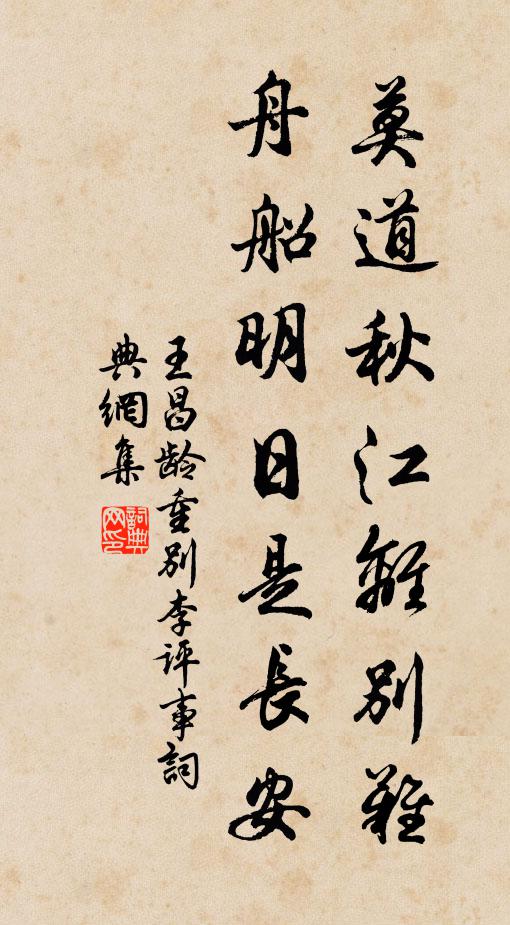 莫道秋江離別難
舟船明日是長安
王昌龄重别李评事詞
典網集
詞典网印